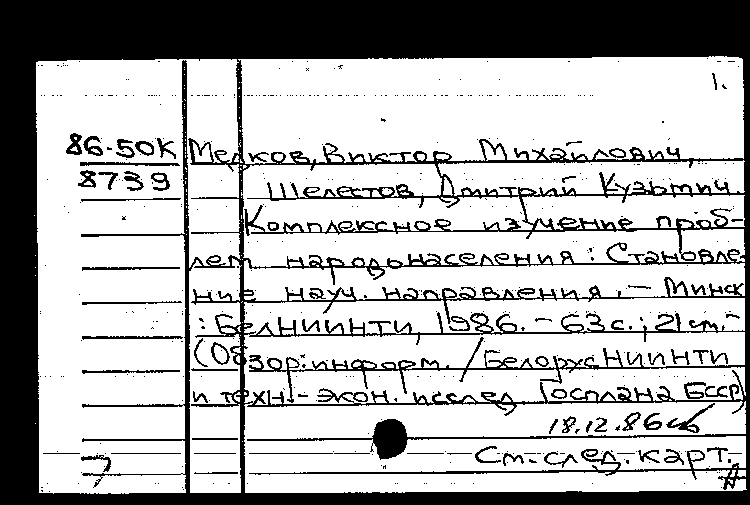 1.
86-50К Медков, Виктор Михайлович,
8739 Шелестов, Дмитрий Кузьмич.
Комплексное изучение проб-
лем народонаселения : Становле-
ние науч. направления. - Минск
: БелНИИНТИ, 1986. - 63 с. ; 21 см. -
(Обзор. информ. / Белорус НИИНТИ
и техн.-экон. исслед. Госплана БССР)
18.12.86
См. след. карт.
7